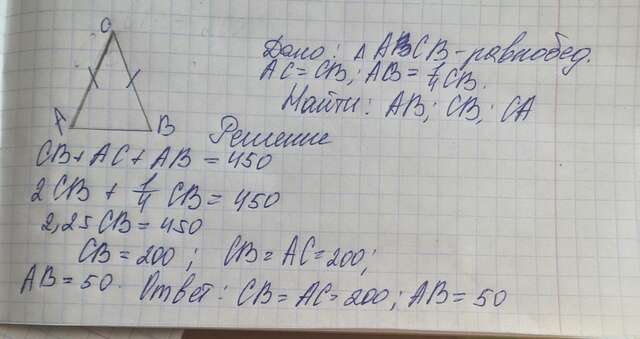 C
A
B
Дано: Δ АВСВ - равнобед.
AC = CB; AB = 1/4 CB.
Найти: АВ; СВ; СА
Решение
CB + AC + AB = 450
2 CB + 1/4 CB = 450
2,25 CB = 450
CB = 200; CB = AC = 200;
AB = 50. Ответ: CB = AC = 200; AB = 50